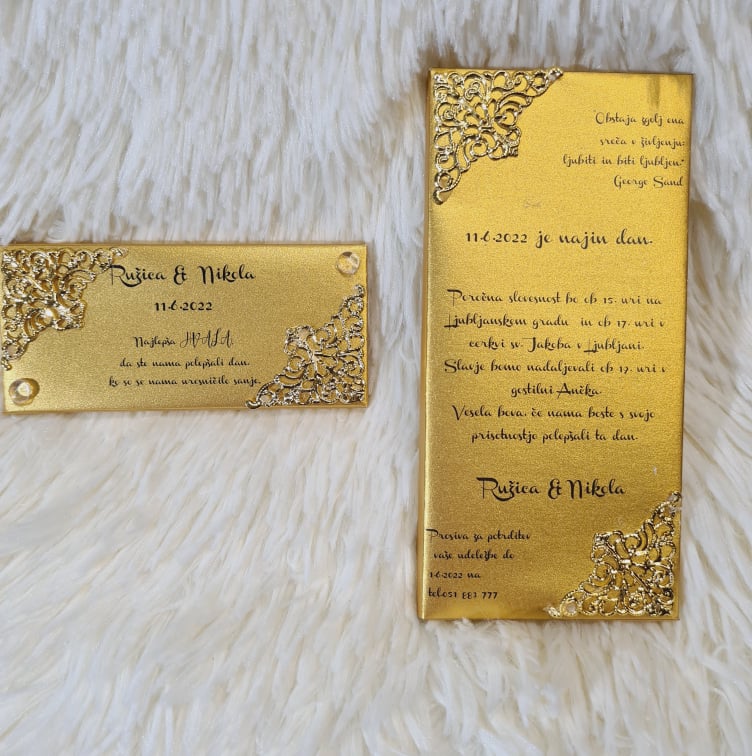 Ružica & Nikola
11.6.2022
Najlepša HVALA,
da ste nama polepšali dan,
ko so se nama uresničile sanje.
"Obstaja zgolj ena
sreča v življenju:
ljubiti in biti ljubljen."
George Sand
11.6.2022 je najin dan.
Poročna slovesnost bo ob 15. uri na
Ljubljanskem gradu in ob 17. uri v
cerkvi sv. Jakoba v Ljubljani.
Slavje bomo nadaljevali ob 19. uri v
gostilni Ančka.
Vesela bova, če nama boste s svojo
prisotnostjo polepšali ta dan.
Ružica & Nikola
Prosiva za potrditev
vaše udeležbe do
1.6.2022 na
tel:051 881 777